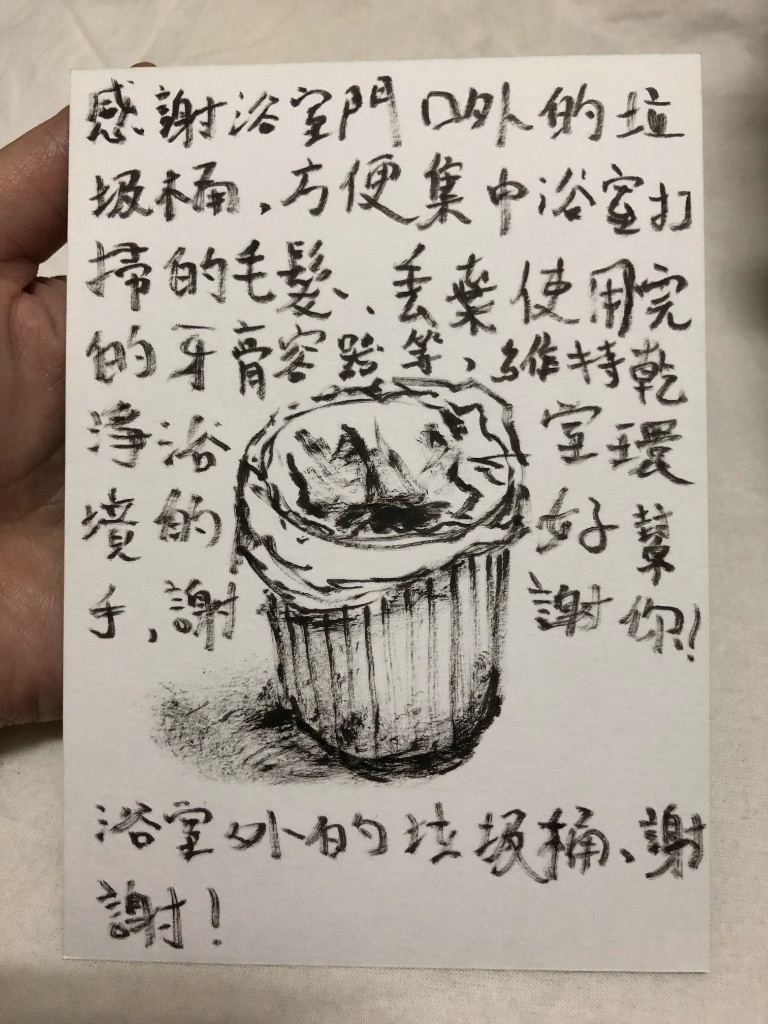 感謝浴室門口外的垃
圾桶,方便集中浴室打
掃的毛髮、丟棄使用完
的牙膏容器等,維持乾
淨浴室環
境的好幫
手,謝謝你!
浴室外的垃圾桶、謝
謝!